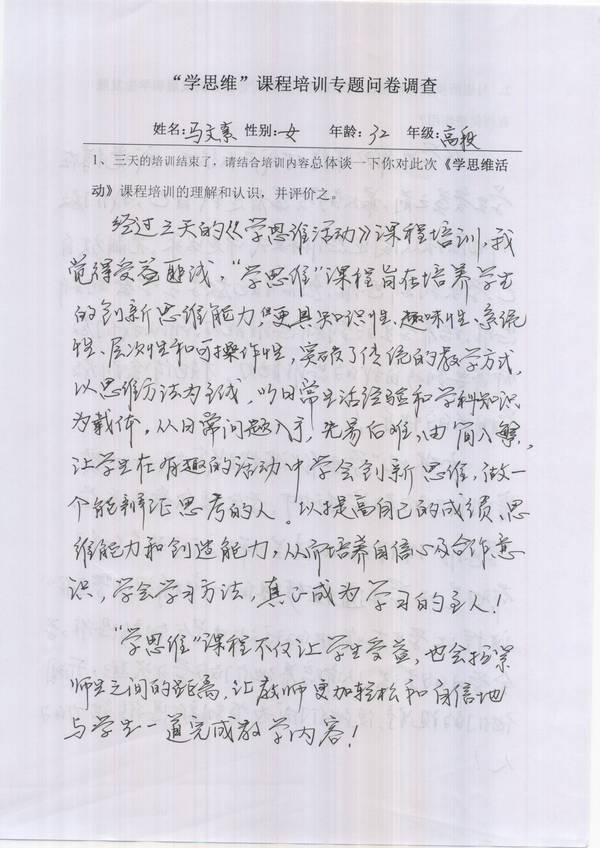 “学思维”课程培训专题问卷调查
姓名:马文素 性别:女 年龄:32 年级:高段
1、三天的培训结束了,请结合培训内容总体谈一下你对此次《学思维活
动》课程培训的理解和认识,并评价之。
经过三天的《学思维活动》课程培训,我
觉得受益匪浅,“学思维”课程旨在培养学生
的创新思维能力,更具知识性、趣味性、系统
性、层次性和可操作性,突破了传统的教学方式,
以思维方法为主线,以日常生活经验和学科知识
为载体,从日常问题入手,先易后难,由简入繁,
让学生在有趣的活动中学会创新思维,做一
个能辩证思考的人。以提高自己的成绩、思
维能力和创造能力,从而培养自信心及合作意
识,学会学习方法,真正成为学习的主人!
“学思维”课程不仅让学生受益,也会拉
师生之间的距离,让教师更加轻松和自信地
与学生一道完成教学内容!